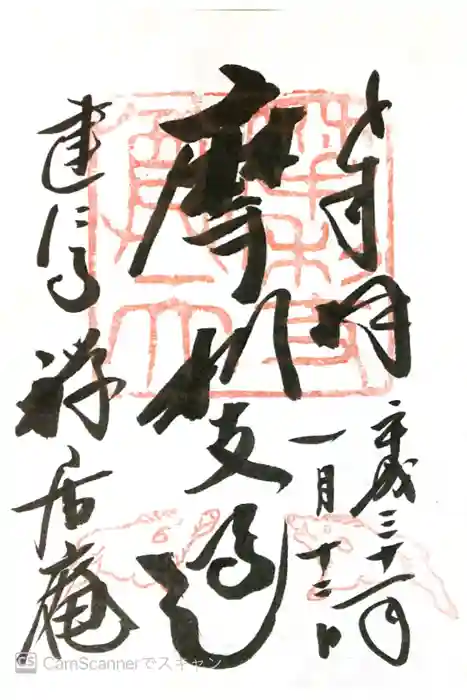 奉拝
平成三十一年
一月十二日
摩利支
建仁寺
禅居庵
CS CamScannerでスキャン